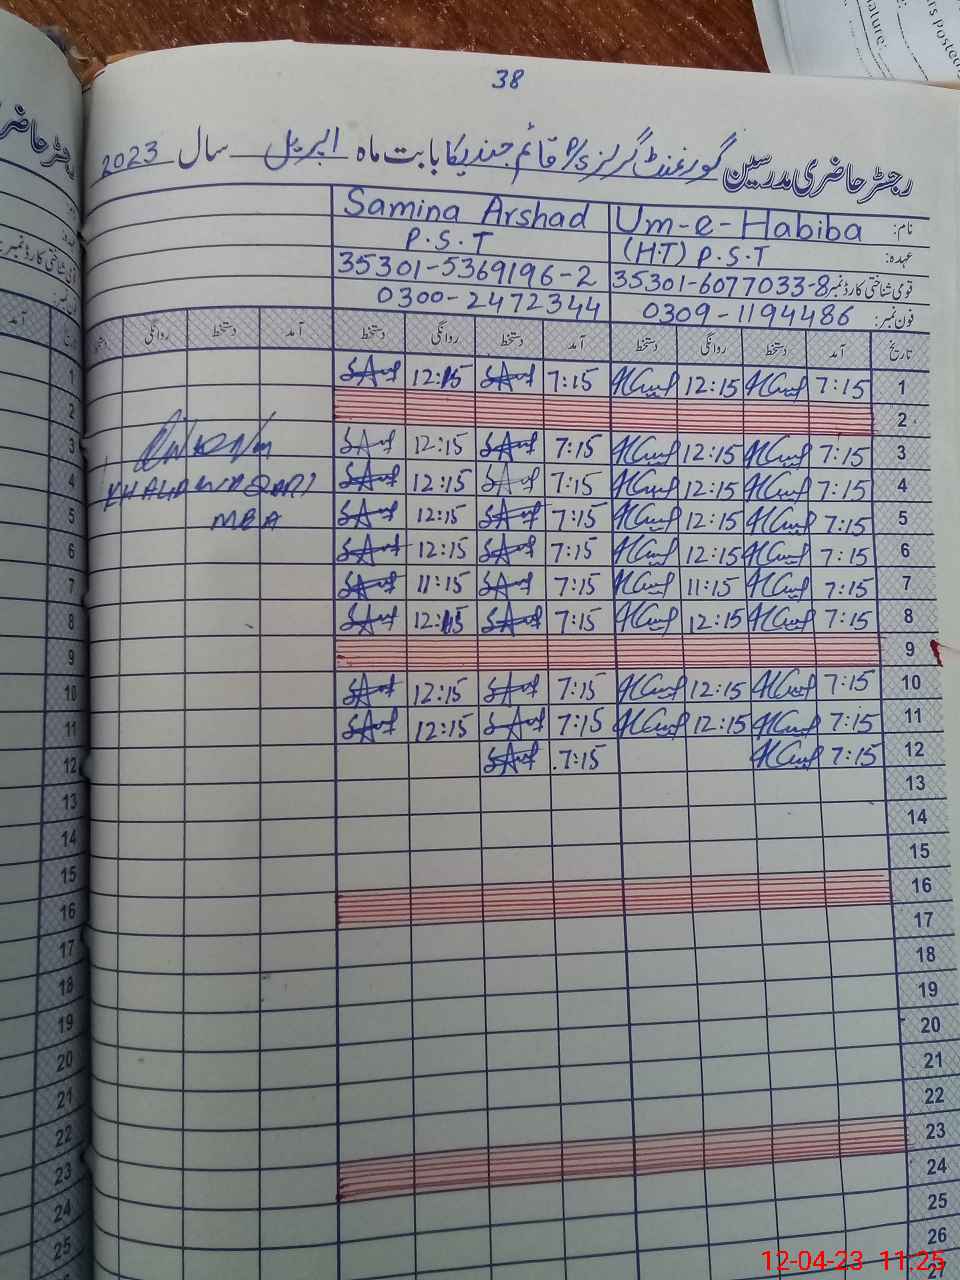 38
رجسٹر حاضری مدرسین گورنمنٹ گرلز P/S قائم جندیکا بابت ماہ اپریل سال 2023
نام: Um-e-Habiba Samina Arshad
عہدہ: (H.T) P.S.T P.S.T
قومی شناختی کارڈ نمبر 35301-6077033-8 35301-5369196-2
فون نمبر: 0309-1194486 0300-2472344
تاریخ آمد دستخط روانگی دستخط آمد دستخط روانگی دستخط آمد دستخط روانگی
1 7:15 12:15 7:15 12:15
2
3 7:15 12:15 7:15 12:15
4 7:15 12:15 7:15 12:15
5 7:15 12:15 7:15 12:15
6 7:15 12:15 7:15 12:15
7 7:15 11:15 7:15 11:15
8 7:15 12:15 7:15 12:15
9
10 7:15 12:15 7:15 12:15
11 7:15 12:15 7:15 12:15
12 7:15 7:15
13
14
15
16
17
18
19
20
21
22
23
24
25
26
27
MBA
1
2
3
4
5
6
7
8
9
10
11
12
13
14
15
16
17
18
19
20
21
22
23
24
25
12-04-23 11:25